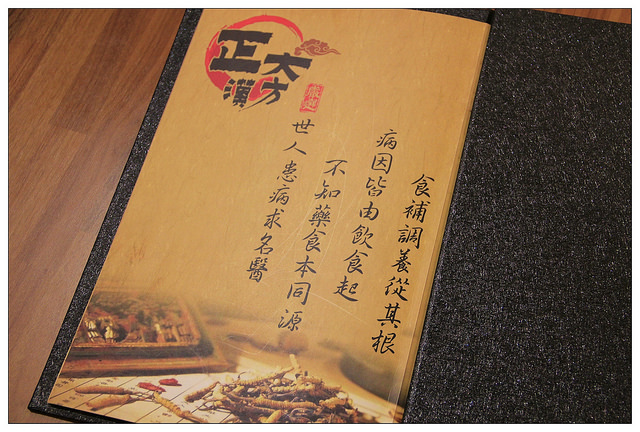 正大
漢方
嚴選
世人患病求名醫
不知藥食本同源
病因皆由飲食起
食補調養從其根